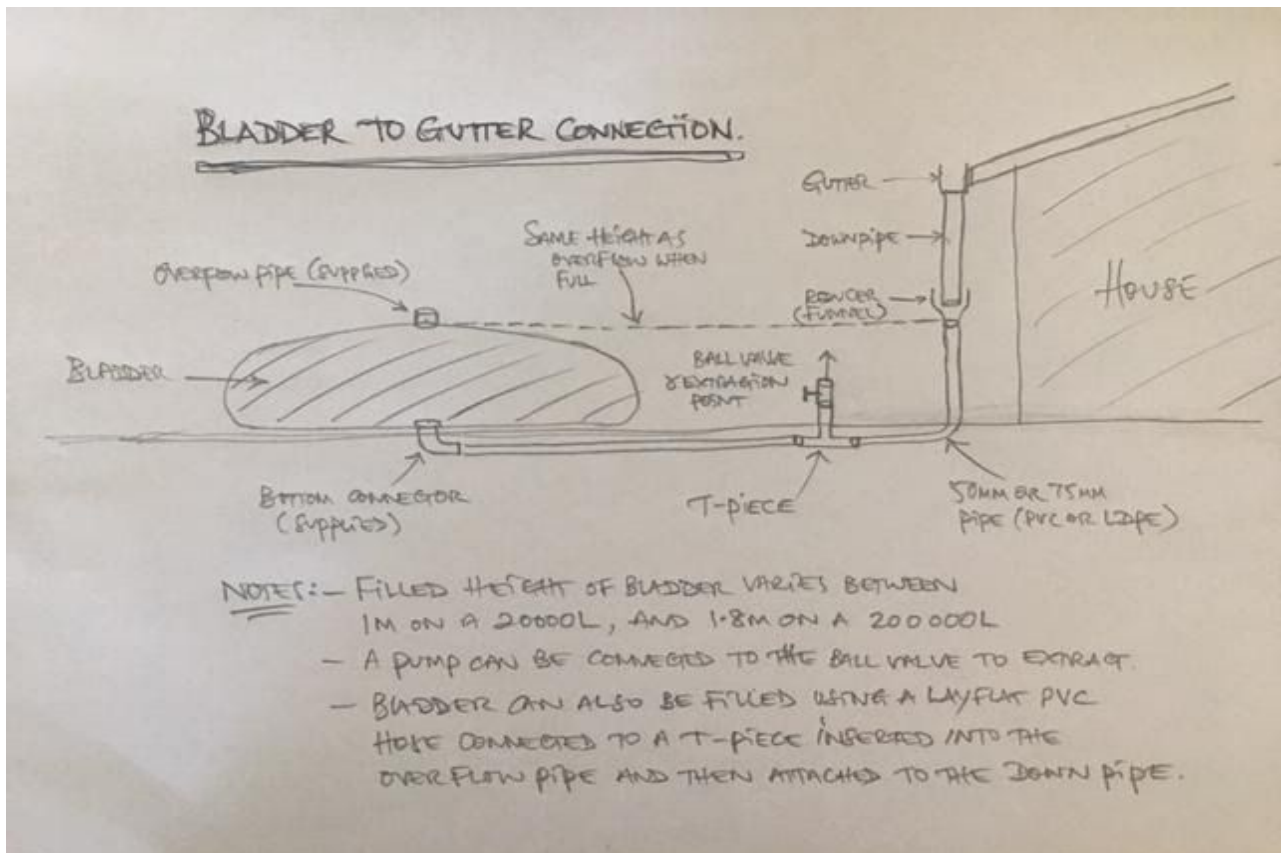 BLADDER TO GUTTER CONNECTION.
GUTTER
DOWNPIPE
REDUCER
(FUNNEL)
HOUSE
SAME HEIGHT AS
OVERFLOW WHEN
FULL
OVERFLOW PIPE (SUPPLIED)
BLADDER
BALL VALVE
& EXTRACTION
POINT
BOTTOM CONNECTOR
(SUPPLIED)
T-PIECE
50MM OR 75MM
PIPE (PVC OR LDPE)
NOTES:- FILLED HEIGHT OF BLADDER VARIES BETWEEN
1M ON A 20000L, AND 1.8M ON A 200000L
- A PUMP CAN BE CONNECTED TO THE BALL VALVE TO EXTRACT.
- BLADDER CAN ALSO BE FILLED USING A LAYFLAT PVC
HOSE CONNECTED TO A T-PIECE INSERTED INTO THE
OVERFLOW PIPE AND THEN ATTACHED TO THE DOWN PIPE.